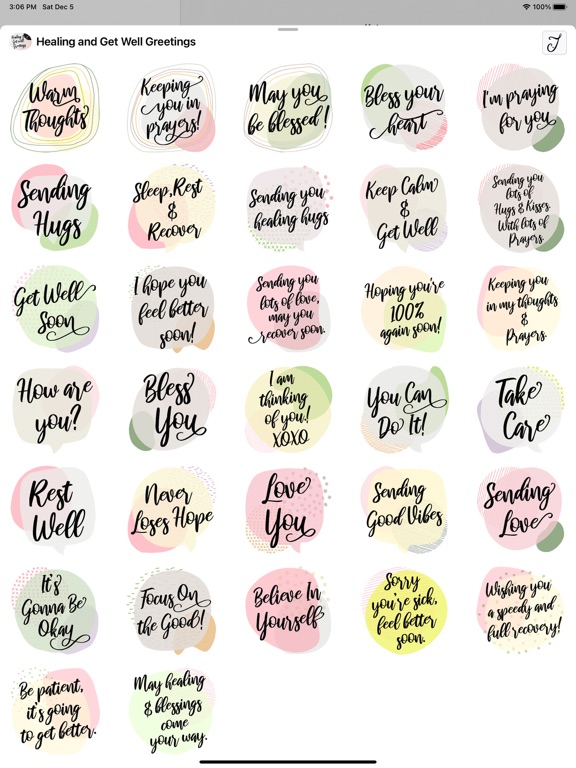 3:06 PM Sat Dec 5
100%
Healing and Get Well Greetings
Warm
Thoughts
Keeping
you in
prayers!
May you
be blessed!
Bless your
heart
I'm praying
for you
Sending
Hugs
Sleep, Rest
&
Recover
Sending you
healing hugs
Keep Calm
&
Get Well
Sending you
lots of
Hugs & Kisses.
With lots of
Prayers.
Get Well
Soon
I hope you
feel better
soon!
Sending you
lots of love,
may you
recover soon.
Hoping you're
100%
again soon!
Keeping you
in my thoughts
&
Prayers.
How are
you?
Bless
You
I am
thinking
of you!
XOXO
You Can
Do It!
Take
Care
Rest
Well
Never
Loses Hope
Love
You
Sending
Good Vibes
Sending
Love
It's
Gonna Be
Okay
Focus On
the Good!
Believe In
Yourself
Sorry
you're sick,
feel better
soon.
Wishing you
a speedy and
full recovery!
Be patient,
it's going
to get better.
May healing
& blessings
come
your way.